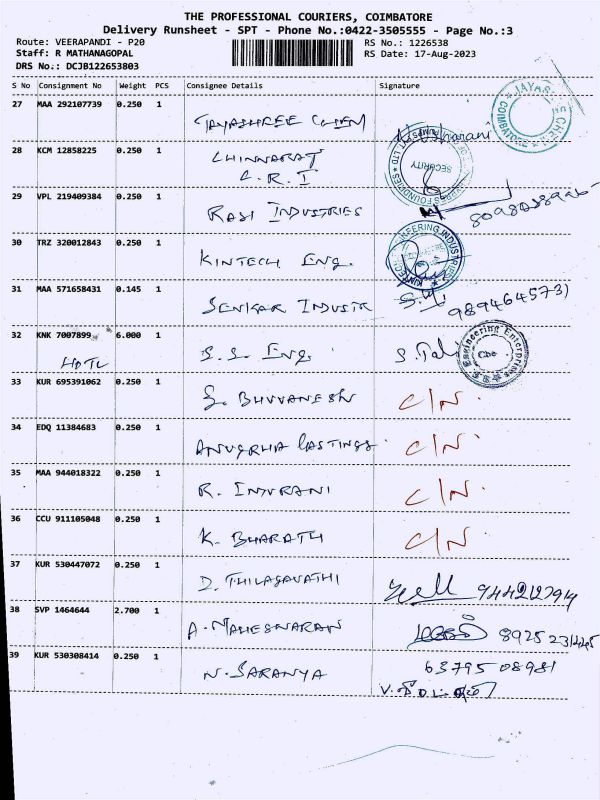 THE PROFESSIONAL COURIERS, COIMBATORE
Delivery Runsheet - SPT - Phone No.:0422-3505555 - Page No.:3
Route: VEERAPANDI - P20 RS No.: 1226538
Staff: R MATHANAGOPAL RS Date: 17-Aug-2023
DRS No.: DCJB122653803
S No Consignment No Weight PCS Consignee Details Signature
27 MAA 292107739 0.250 1
JAYASHREE CHEM
28 KCM 12858225 0.250 1
CHINNARAJ
C.R.I
SECURITY
29 VPL 219409384 0.250 1
RASI INDUSTRIES
30 TRZ 320012843 0.250 1
KINTECH Eng.
31 MAA 571658431 0.145 1
INDUSTR
9894645731
32 KNK 7007899 6.000 1
S.S. Eng.
Engineering Enterprises
Cbe
33 KUR 695391062 0.250 1
S. BHUVANESH C/N.
34 EDQ 11384683 0.250 1
ANUGRHA CASTINGS. C/N.
35 MAA 944018322 0.250 1
R. INDURANI C/N.
36 CCU 911105048 0.250 1
K. BHARATH C/N.
37 KUR 530447072 0.250 1
D. THILAGAVATHI
38 SVP 1464644 2.700 1
A. MAHESWARAN
39 KUR 530308414 0.250 1
N. SARANYA 63795 08981